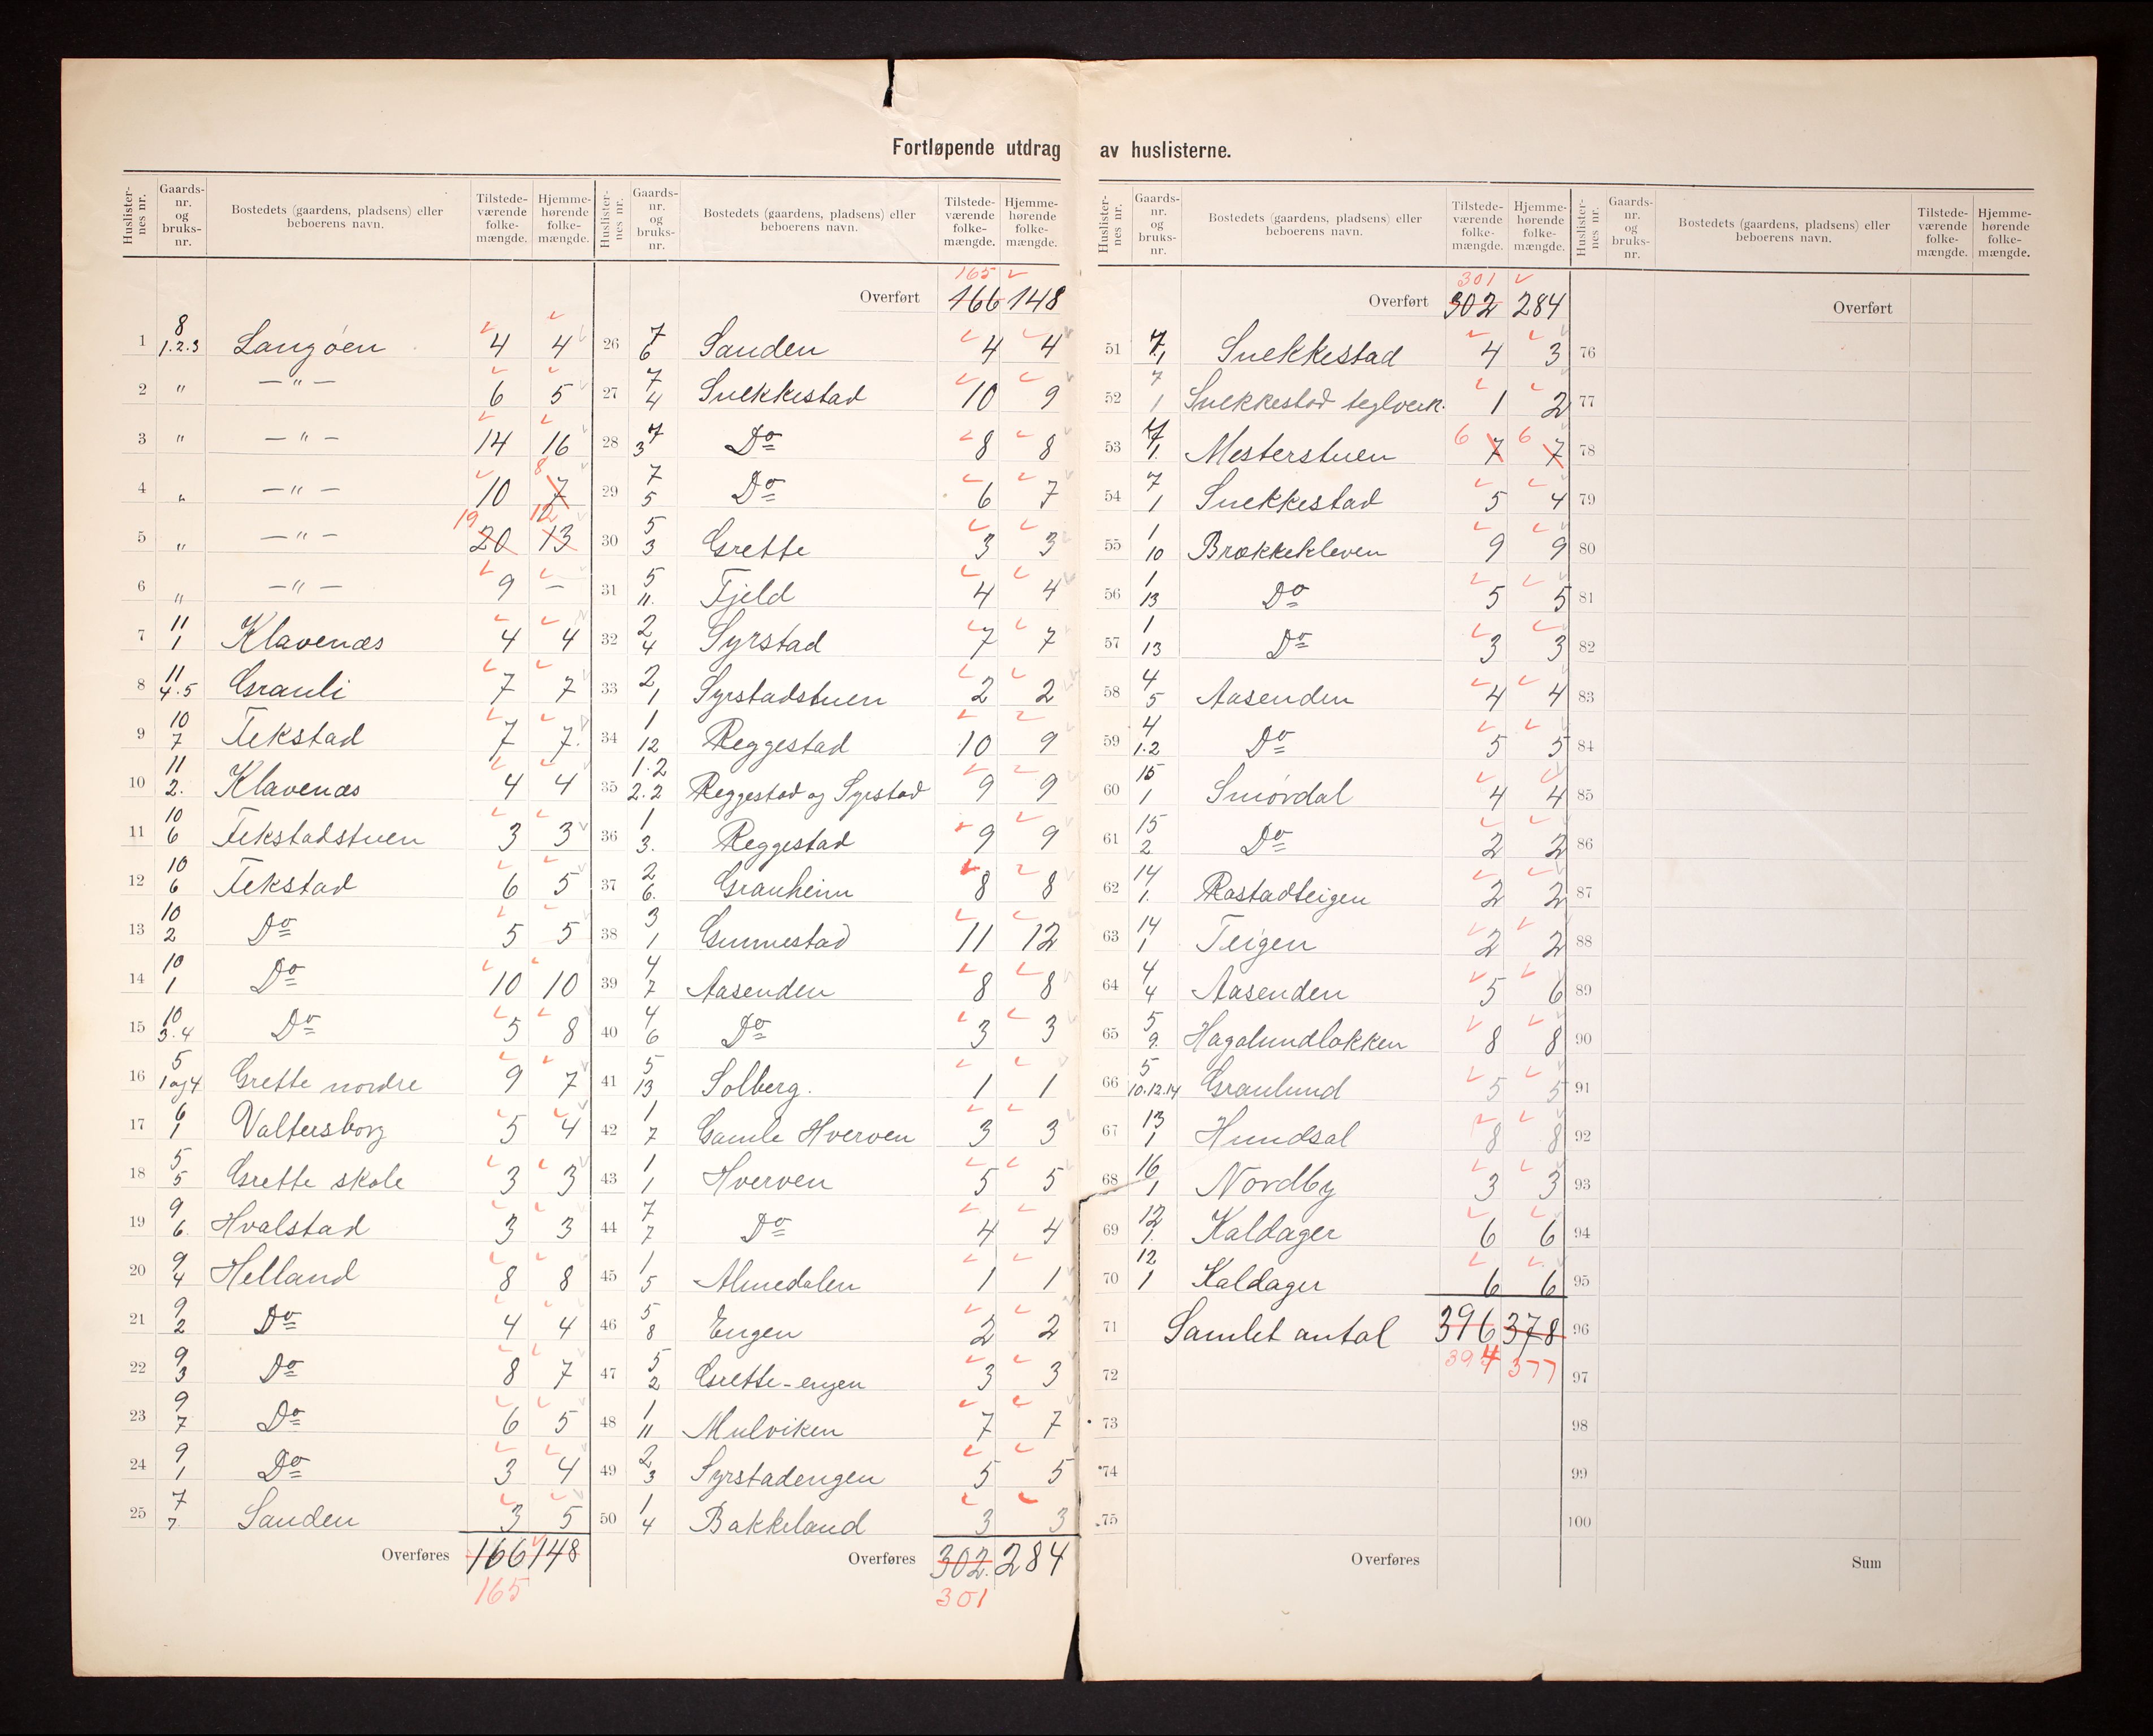 Fortløpende utdrag av huslisterne.
Huslisternes nr. Gaards-nr. og bruks-nr. Bostedets (gaardens, pladsens) eller beboerens navn. Tilstedeværende folkemængde. Hjemmehørende folkemængde.
1 8 1.2.3 Langøen 4 4
2 " — " — 6 5
3 " — " — 14 16
4 " — " — 10 7 8
5 " — " — 20 19 13 12
6 " — " — 9 —
7 11 1 Klavenæs 4 4
8 11 4.5 Granli 7 7
9 10 7 Fekstad 7 7.
10 11 2. Klavenæs 4 4
11 10 6 Fekstadstuen 3 3
12 10 6 Fekstad 6 5
13 10 2 Do 5 5
14 10 1 Do 10 10
15 10 3.4 Do 5 8
16 5 1 og 4 Grette nordre 9 7
17 6 1 Valtersborg 5 4
18 5 5 Grette skole 3 3
19 9 6. Hvalstad 3 3
20 9 4 Helland 8 8
21 9 2 Do 4 4
22 9 3 Do 8 7
23 9 7 Do 6 5
24 9 1 Do 3 4
25 7 7 Sanden 3 5
Overføres 166 148
165
Huslisternes nr. Gaards-nr. og bruks-nr. Bostedets (gaardens, pladsens) eller beboerens navn. Tilstedeværende folkemængde. Hjemmehørende folkemængde.
165
Overført 166 148
26 7 6 Sanden 4 4
27 7 4 Snekkestad 10 9
28 7 3 Do 8 8
29 7 5 Do 6 7
30 5 3 Grette 3 3
31 5 11. Fjeld 4 4
32 2 4 Syrstad 7 7
33 2 1 Syrstadstuen 2 2
34 1 12 Reggestad 10 9
35 1.2 2.2 Reggestad og Syrstad 9 9
36 1 3. Reggestad 9 9
37 2 6. Granheim 8 8
38 3 1 Gunnestad 11 12
39 4 7 Aasenden 8 8
40 4 6 Do 3 3
41 5 13 Solberg. 1 1
42 1 7 Gamle Hverven 3 3
43 1 1 Hverven 5 5
44 7 7 Do 4 4
45 1 5 Almedalen 1 1
46 5 8 Engen 2 2
47 5 2 Grette-engen 3 3
48 1 11 Mulviken 7 7
49 2 3 Syrstadengen 5 5
50 1 4 Bakkeland 3 3
Overføres 302. 284
301
Huslisternes nr. Gaards-nr. og bruks-nr. Bostedets (gaardens, pladsens) eller beboerens navn. Tilstedeværende folkemængde. Hjemmehørende folkemængde.
301
Overført 302 284
51 7 1 Snekkestad 4 3
52 7 1 Snekkestad teglverk. 1 2
53 7 1. Mesterstuen 6 7 6 7
54 7 1 Snekkestad 5 4
55 1 10 Brækkekleven 9 9
56 1 13 Do 5 5
57 1 13 Do 3 3
58 4 5 Aasenden 4 4
59 4 1.2 Do 5 5
60 15 1 Smørdal 4 4
61 15 2 Do 2 2
62 14 1. Rastadteigen 2 2
63 14 1 Teigen 2 2
64 4 4 Aasenden 5 6
65 5 9. Hagalundløkken 8 8
66 5 10.12.14 Granlund 5 5
67 13 1 Hundsal 8 8
68 16 1 Nordby 3 3
69 12 1. Kaldager 6 6
70 12 1 Kaldager 6 6
71 Samlet antal 396 378
72 394 377
73
74
75
Overføres
Huslisternes nr. Gaards-nr. og bruks-nr. Bostedets (gaardens, pladsens) eller beboerens navn. Tilstedeværende folkemængde. Hjemmehørende folkemængde.
Overført
76
77
78
79
80
81
82
83
84
85
86
87
88
89
90
91
92
93
94
95
96
97
98
99
100
Sum